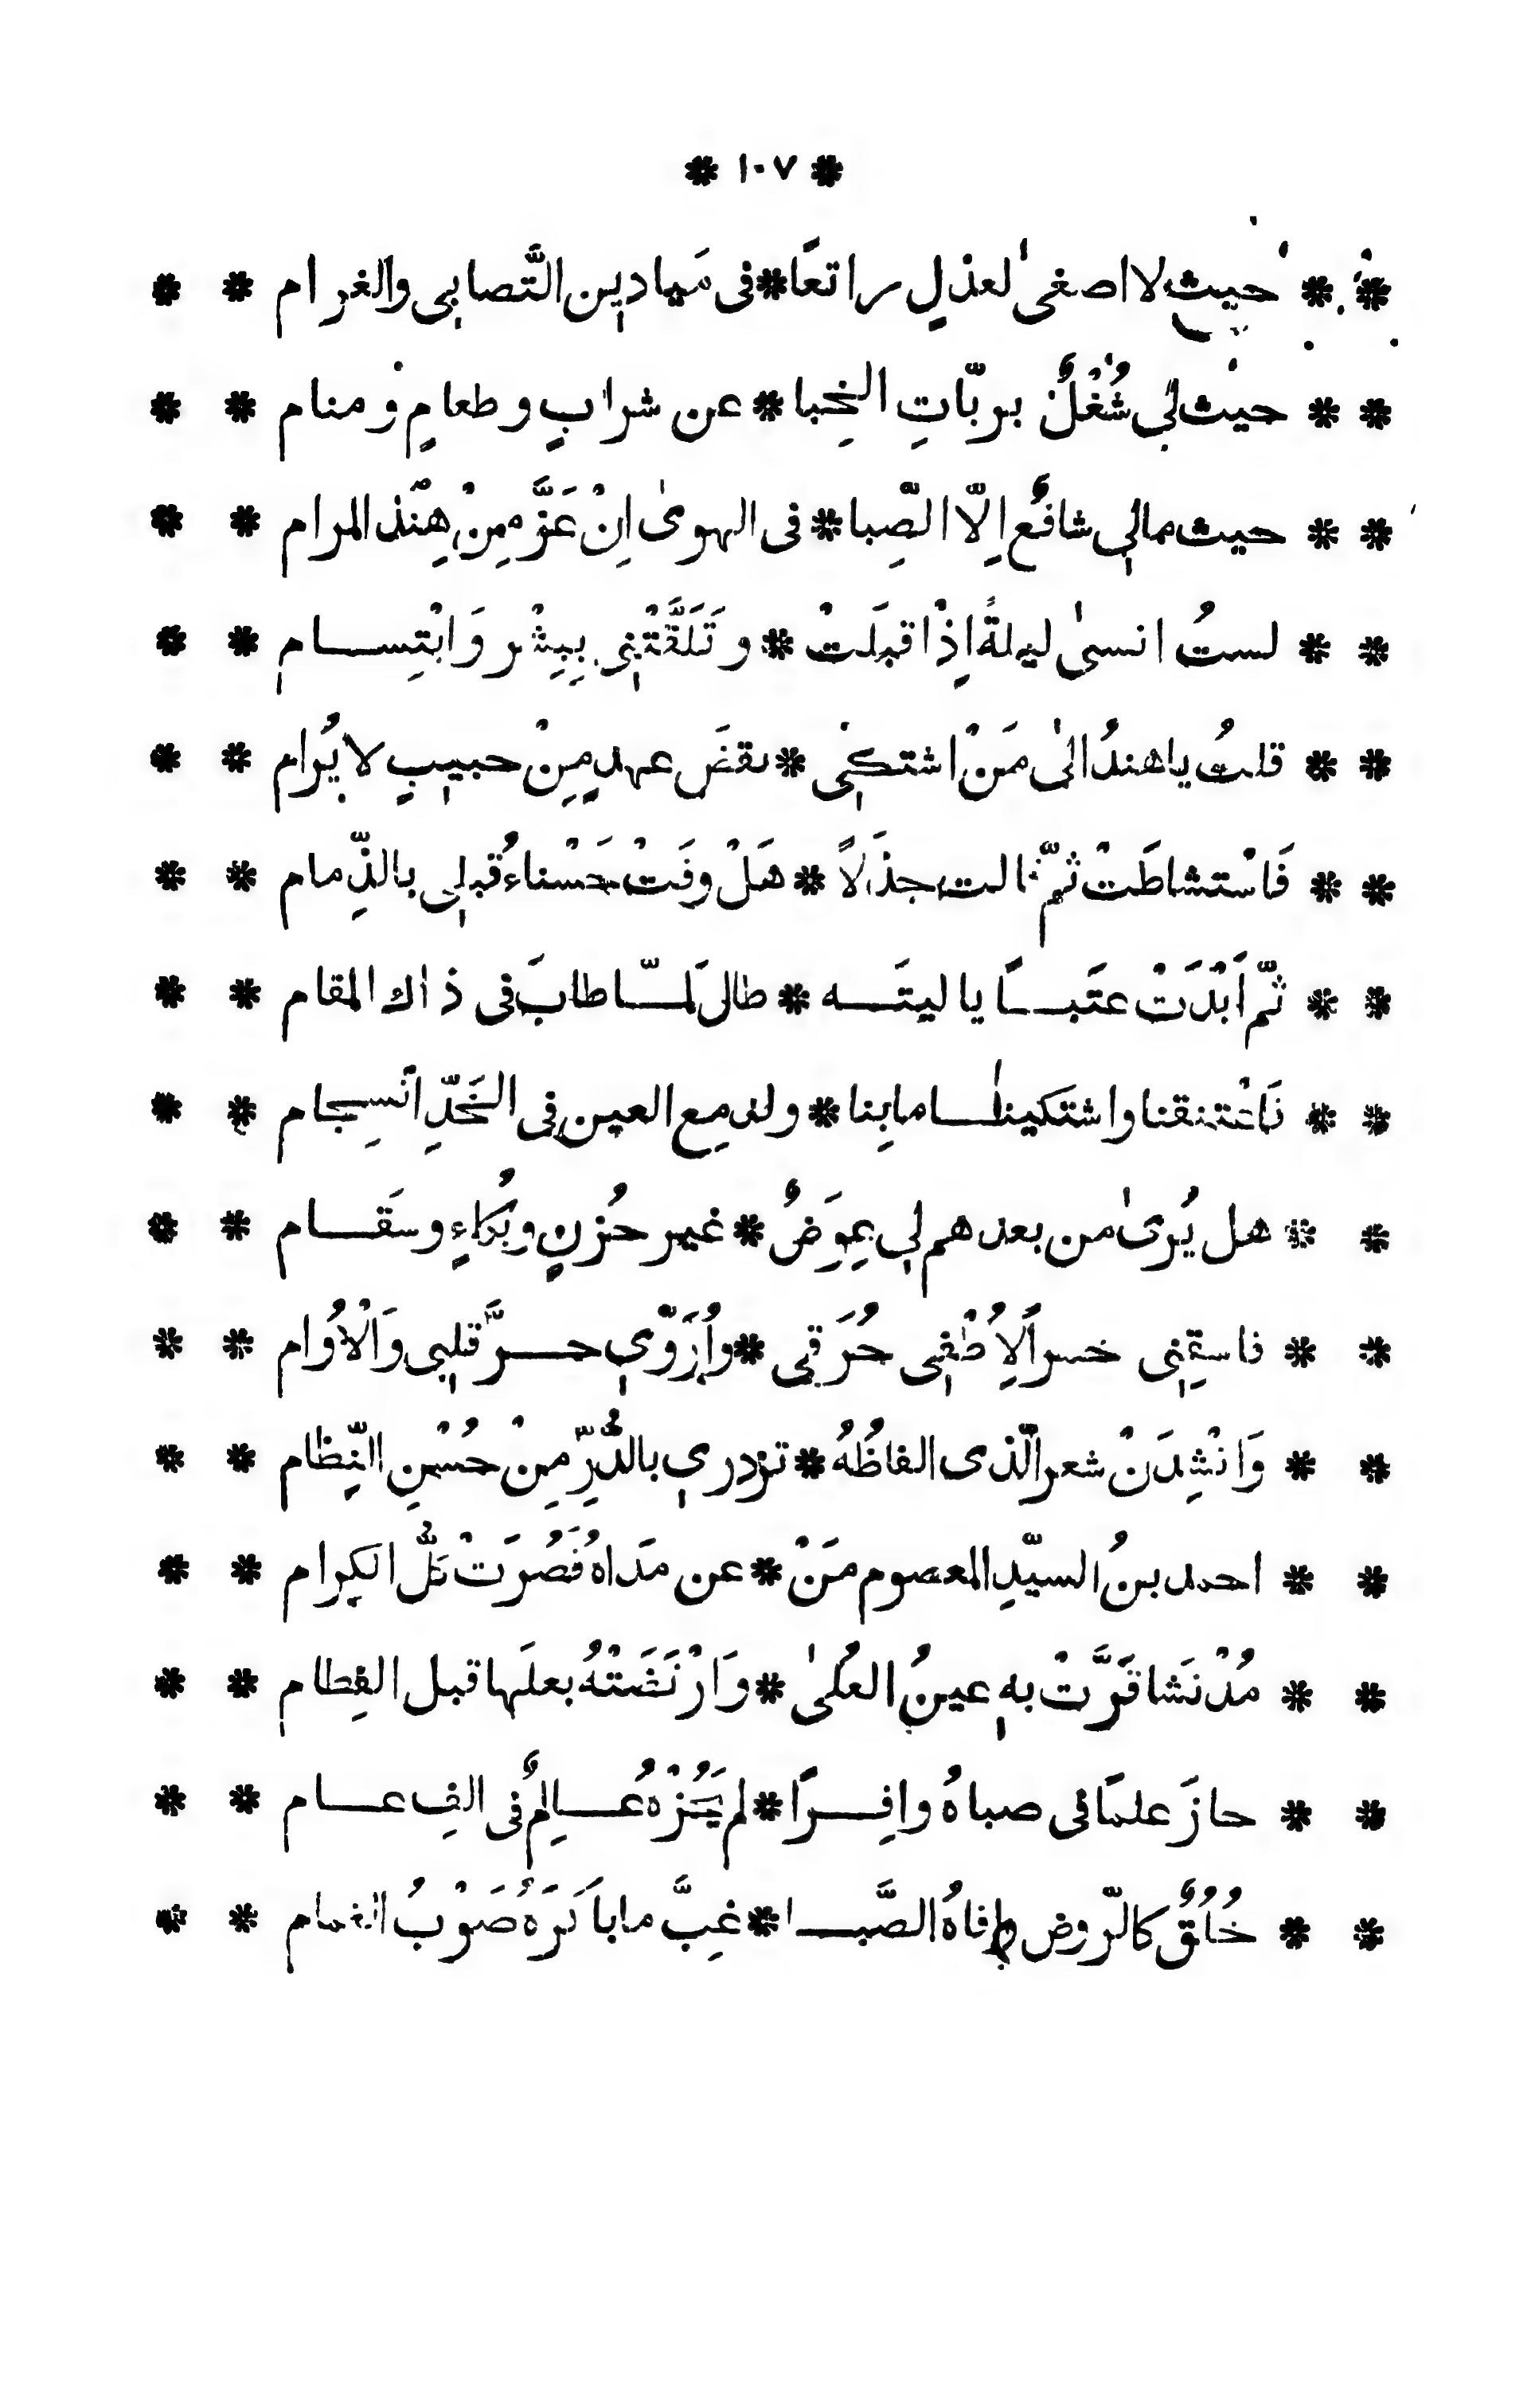 * ١٠٧ *
* * حيث لا اصغىٰ لعذلٍ راتعًا * فى مَيادين التَّصابي والغرام * *
* * حيث لي شُغْلٌ بربّاتِ الخِبا * عن شرابٍ وطعامٍ ومنام * *
* * حيث مالي شافعٌ الّا الصِّبا * فى الهوىٰ اِنْ عَزَّ مِنْ هِنْد المرام * *
* * لستُ انسىٰ ليلةً اِذْ اقبلَتْ * و تَلَقَّتْنِي بِبِشْر وَ ابْتِســـام * *
* * قلتُ يا هندُ الىٰ مَنْ اشتكي * نقضَ عهدٍ مِنْ حبيبٍ لا يُرام * *
* * فَاسْتشاطَتْ ثمّ قالت جذَلاً * هَلْ وفَتْ حَسْناءُ قبلي بالذِّمام * *
* * ثمّ أَبْدَتْ عتَبــاً يا ليتَــه * طال لَمّــا طابَ فى ذاك المقام * *
* * فَاعْتنقنا واشتكينا مابِنا * ولدمع العين فِى الخَدِّ انْسِجام * *
* * هل يُرىٰ من بعدهم لي عِوَضٌ * غير حُزنٍ وبُكاءٍ وسقَــام * *
* * فاسقِني خمراً لِاُطْفي حُرَقي * واُرَوّي حــرَّ قلبي وَالْاُوام * *
* * وَانْشِدَنْ شعر الّذى الفاظُهُ * تزدري بالدُّرِّ مِنْ حُسْنِ النِّظام * *
* * احمد بنُ السيّدِ المعصوم مَنْ * عن مدَاهُ قَصُرَتْ كلُّ الكِرام * *
* * مُذْ نَشا قَرَّتْ بهِ عينُ العُلىٰ * وَارْتَضَتْهُ بعلَها قبل الفِطام * *
* * حازَ علمًا فى صباهُ وافِــرًا * لم يَحُزْهُ عــالِمٌ فى الفِ عــام * *
* * خُلُقٌ كالرّوض وافاهُ الصَّبــا * غِبَّ ما باكَرَهُ صَوْبُ الغمام * *